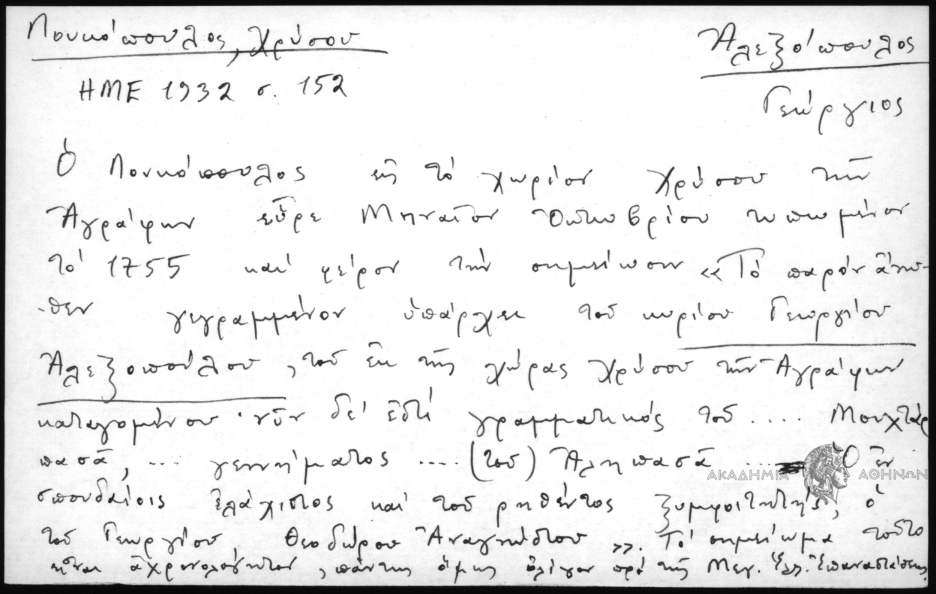 Λουκόπουλος, Χρύσου
Ἀλεξόπουλος
ΗΜΕ 1932 σ. 152
Γεώργιος
Ὁ Λουκόπουλος εἰς τό χωρίον Χρύσου τῶν
Ἀγράφων εὗρε Μηναῖον Ὀκτωβρίου τυπωμένον
τό 1755 καί φέρον τήν σημείωσιν «Τό παρόν ἄνω-
θεν γεγραμμένον ὑπάρχει τοῦ κυρίου Γεωργίου
Ἀλεξοπούλου, τοῦ ἐκ τῆς χώρας Χρύσου τῶν Ἀγράφων
καταγομένου νῦν δέ ἐστί γραμματικός τοῦ .... Μουχτάρ
πασᾶ, ... γεννήματος .... (τοῦ) Ἀληπασᾶ .... Ὁ ἐν
σπουδαίοις ἐλάχιστος καί τοῦ ρηθέντος ξυμφοιτητής, ὁ
τοῦ Γεωργίου Θεοδώρου Ἀναγνώστου ». Τό σημείωμα τοῦτο
εἶναι ἀχρονολόγητον, πάντως ὅμως ὀλίγον πρό τῆς Μεγ. Ἑλλ. Ἐπαναστάσεως.
ΑΚΑΔΗΜΙΑ ΑΘΗΝΩΝ